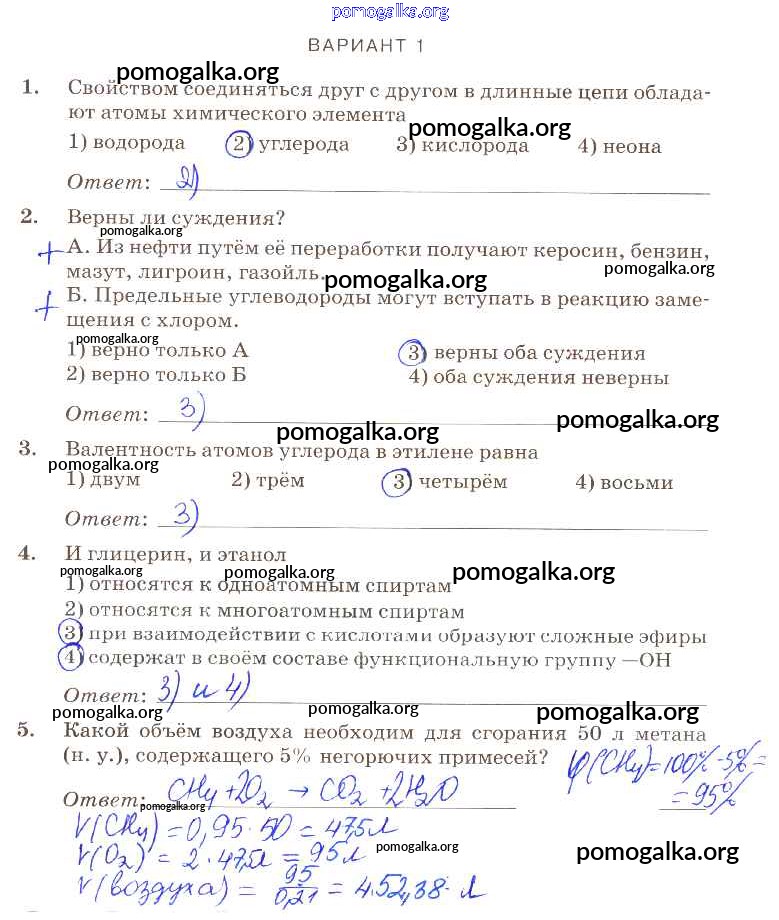 pomogalka.org
ВАРИАНТ 1
pomogalka.org
1. Свойством соединяться друг с другом в длинные цепи облада-
ют атомы химического элемента
pomogalka.org
1) водорода 2) углерода 3) кислорода 4) неона
Ответ: 2)
2. Верны ли суждения?
pomogalka.org
+ А. Из нефти путём её переработки получают керосин, бензин,
мазут, лигроин, газойль.
pomogalka.org
pomogalka.org
+ Б. Предельные углеводороды могут вступать в реакцию заме-
щения с хлором.
pomogalka.org
1) верно только А 3) верны оба суждения
2) верно только Б 4) оба суждения неверны
Ответ: 3)
pomogalka.org
pomogalka.org
3. Валентность атомов углерода в этилене равна
pomogalka.org
1) двум 2) трём 3) четырём 4) восьми
Ответ: 3)
4. И глицерин, и этанол
pomogalka.org
pomogalka.org
pomogalka.org
1) относятся к одноатомным спиртам
2) относятся к многоатомным спиртам
3) при взаимодействии с кислотами образуют сложные эфиры
4) содержат в своём составе функциональную группу —ОН
Ответ: 3) и 4)
pomogalka.org
pomogalka.org
pomogalka.org
5. Какой объём воздуха необходим для сгорания 50 л метана
(н. у.), содержащего 5% негорючих примесей? φ(CH4)=100%-5%=
=95%
Ответ: CH4+2O2 → CO2+2H2O
pomogalka.org
V(CH4)=0,95·50=47,5л
V(O2)=2·47,5л=95л
pomogalka.org
pomogalka.org
V(воздуха)=95/0,21=452,38 л